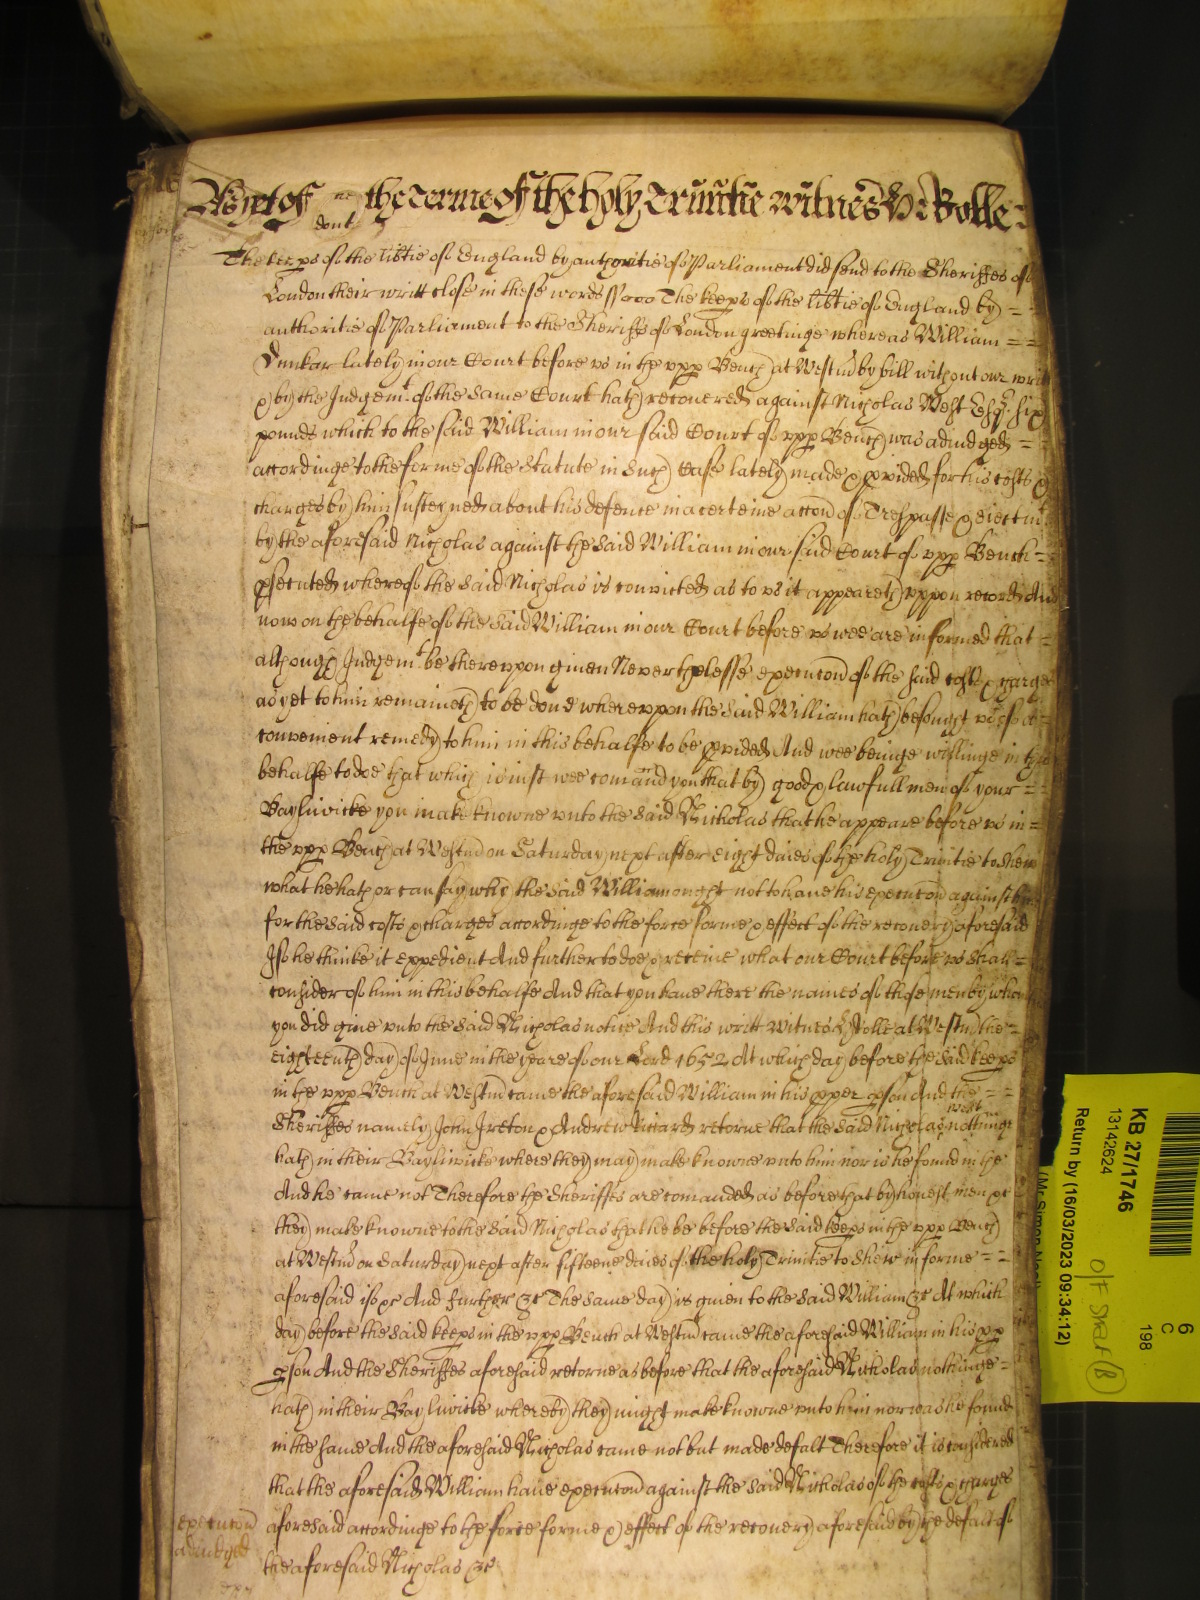 As yet of the Terme of the holy Trinitie Witnes H: Rolle:
London
The keeps of the libtie of England by authoritie of Parliament did send to the Sheriffes of
London their writt close in these words ss The keeps of the libtie of England by = =
authoritie of Parliament to the Sheriffs of London greetinge whereas William = =
Dunkar lately in our Court before us in the upp Bench at Westm by bill without our writ
& by the Judgemt of the same Court hath recovered against Nicholas West Esqr six
pounds which to the said William in our said Court of upp Bench was adiudged =
accordinge to the forme of the Statute in such Case lately made & pvided for his costs &
charges by him susteyned about his defence in a certeine accon of Trespasse & eiectmt
by the aforesaid Nicholas against the said William in our said Court of upp Bench =
psecuted whereof the said Nicholas is convicted as to us it appeareth uppon record And
now on the behalfe of the said William in our Court before us wee are informed that =
although Judgemt be thereuppon given Neverthelesse execucon of the said costs & charges
as yet to him remaineth to be done whereuppon the said William hath besought us of a =
convenient remedy to him in this behalfe to be pvided And wee beinge willinge in this
behalfe to doe that which is iust wee comand you that by good & lawfull men of your = =
Bayliwicke you make knowne unto the said Nicholas that he appeare before us in =
the upp Bench at Westm on Saturday next after eight daies of the holy Trinitie to shew
what he hath or can say why the said William ought not to have his execucon against him
for the said costs & charges accordinge to the force forme & effect of the recovery aforesaid
If he thinke it expedient And further to doe & receive what our Court before us shall =
consider of him in this behalfe And that you have there the names of those men by whom
you did give unto the said Nicholas notice And this writt Witnes H Rolle at Westm the =
eighteenth day of June in the yeare of our Lord 1652 At which day before the said keeps
in the upp Bench at Westm came the aforesaid William in his pper pson And the = =
Sheriffes namely John Ireton & Andrew Riccard retorne that the said Nicholas West nothinge
hath in their Bayliwicke where they may make knowne unto him nor is he found in the
And he came not Therefore the Sheriffes are comanded as before that by honest men &c
they make knowne to the said Nicholas that he be before the said keeps in the upp Bench
at Westm on Saturday next after fifteene daies of the holy Trinitie to shew in forme = =
aforesaid if &c And further &c The same day is given to the said William &c At which
day before the said keeps in the upp Bench at Westm came the aforesaid William in his pp
pson And the Sheriffes aforesaid retorne as before that the aforesaid Nicholas nothinge =
hath in their Bayliwicke whereby they might make knowne unto him nor was he found
in the same And the aforesaid Nicholas came not but made defalt Therefore it is considered
that the aforesaid William have execucon against the said Nicholas of the costs & charges
execucon
adiudged
aforesaid accordinge to the force forme & effect of the recovery aforesaid by the default of
the aforesaid Nicholas &c
KB 27/1746
13142624
Return by (16/03/2023 09:34:12)
6
C
198